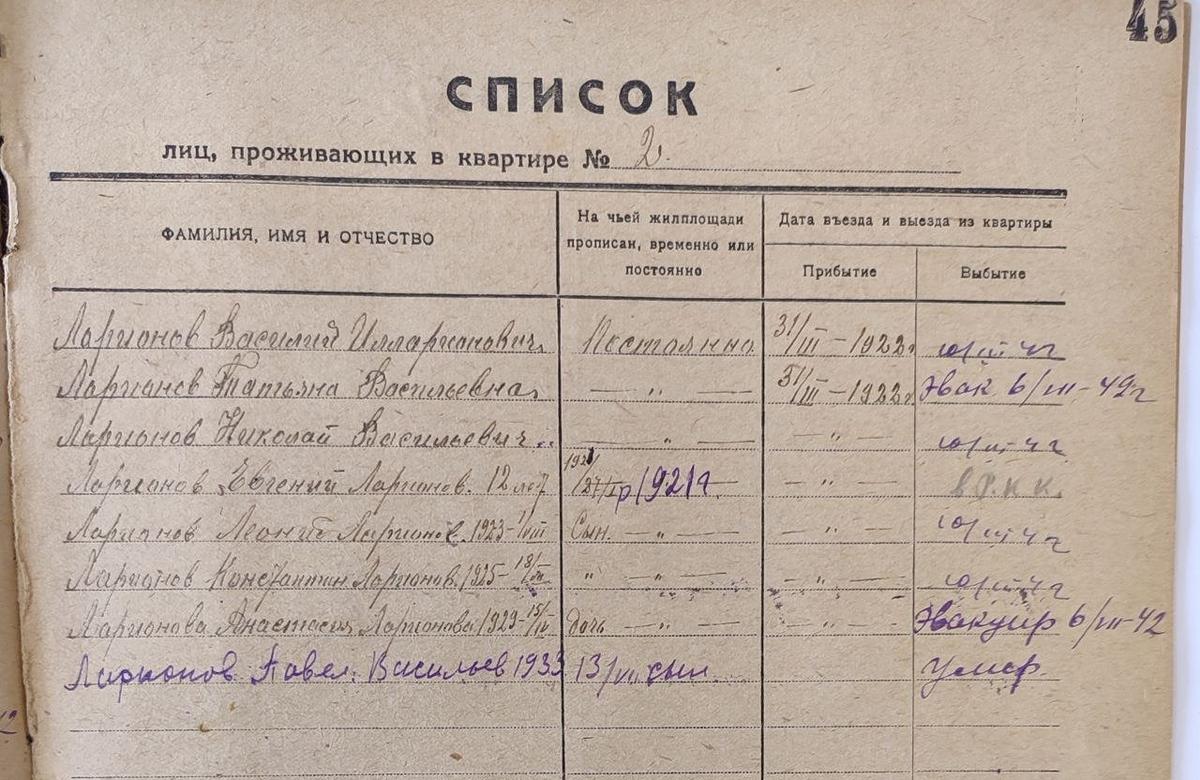 45
СПИСОК
лиц, проживающих в квартире № 2.
ФАМИЛИЯ, ИМЯ И ОТЧЕСТВО
На чьей жилплощади прописан, временно или постоянно
Дата въезда и выезда из квартиры
Прибытие
Выбытие
Ларионов Василий Илларионович. Постоянно 31/III – 1922г
Ларионов Татьяна Васильевна. — " — 31/III – 1922г Эвак. 6/III – 42г
Ларионов Николай Васильевич.. — " — — " —
Ларионов Евгений Ларионов. 12 лет р 1921г. — " — в Р.К.К.
Ларионов Леонид Ларионов. 1923 – 1/VIII Сын. — " — — " —
Ларионов Константин Ларионов. 1925 – " — " — — " —
Ларионова Анастасия Ларионова 1929 – 15/IV дочь — " — — " — Эвакуир 6/III – 42
Ларионов Павел. Васильев 1933 13/VII сын.